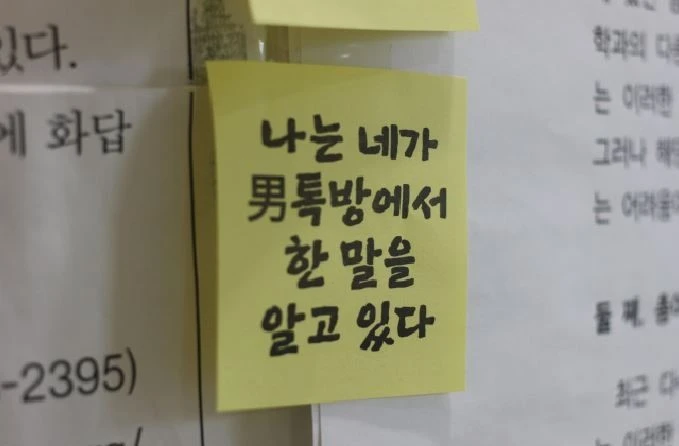 있다.
에 화답
-2395)
나는 네가
男톡방에서
한 말을
알고 있다
학과의
는 이러한
그러나
는 어려움이
둘째,
최근
는 이러한